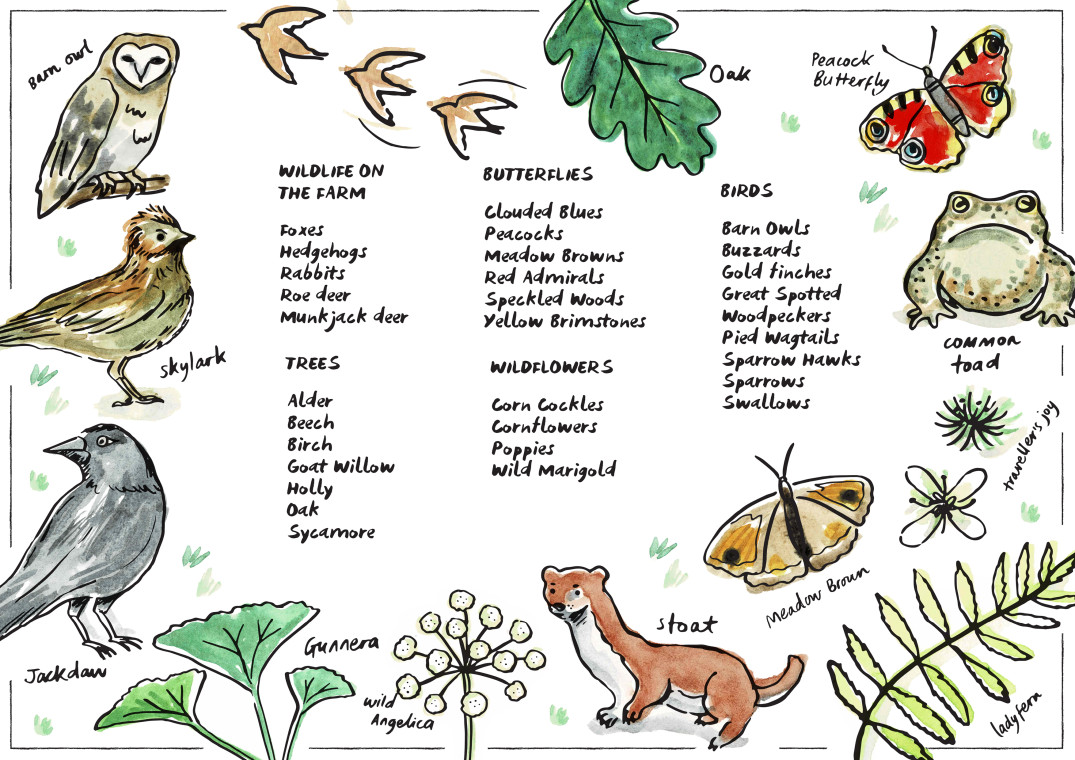 Barn Owl
Oak
Peacock
Butterfly
WILDLIFE ON
THE FARM
Foxes
Hedgehogs
Rabbits
Roe deer
Munkjack deer
TREES
Alder
Beech
Birch
Goat Willow
Holly
Oak
Sycamore
BUTTERFLIES
Clouded Blues
Peacocks
Meadow Browns
Red Admirals
Speckled Woods
Yellow Brimstones
WILDFLOWERS
Corn Cockles
Cornflowers
Poppies
Wild Marigold
BIRDS
Barn Owls
Buzzards
Gold finches
Great Spotted
Woodpeckers
Pied Wagtails
Sparrow Hawks
Sparrows
Swallows
skylark
common
toad
traveller's joy
Meadow Brown
stoat
Jackdaw
Gunnera
wild
Angelica
ladyfern